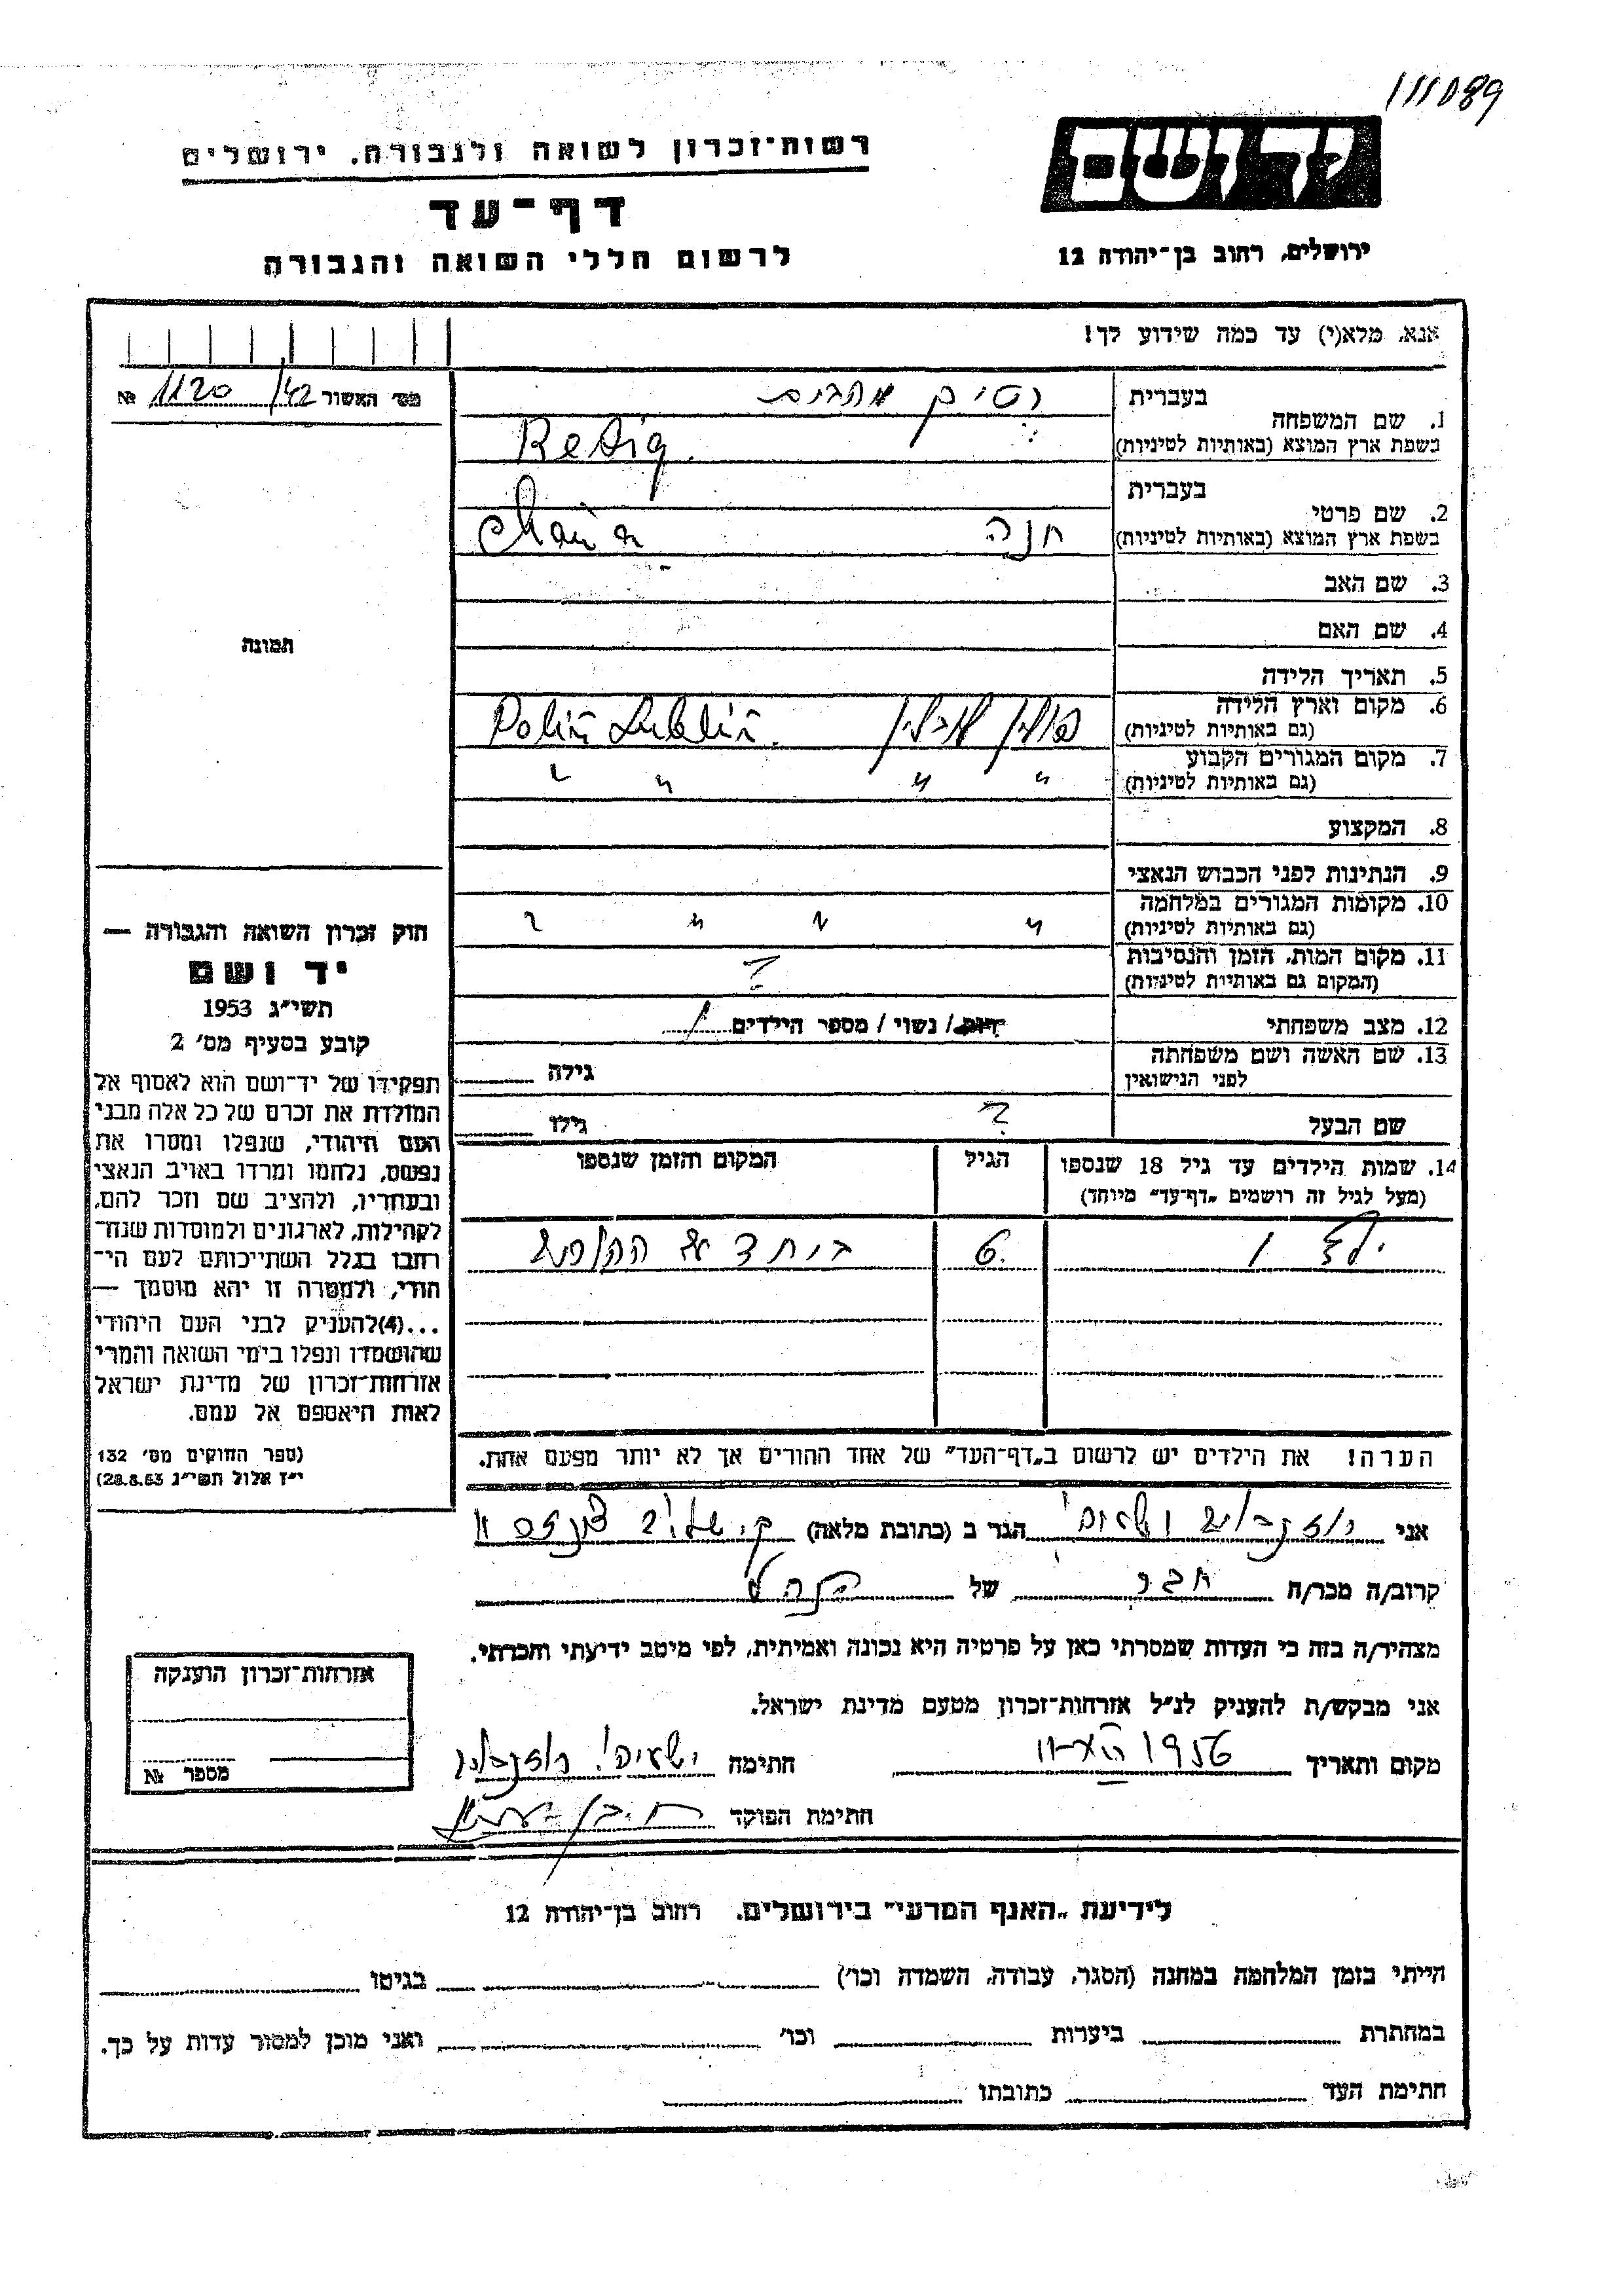 111089
יד ושם
רשות־זכרון לשואה ולגבורה. ירושלים
דף־עד
לרשום חללי השואה והגבורה
ירושלים, רחוב בן־יהודה 12
אנא, מלא(י) עד כמה שידוע לך!
מס׳ האשור 1120/42 №
1. שם המשפחה
בעברית
בשפת ארץ המוצא (באותיות לטיניות)
Retig
2. שם פרטי
בעברית
בשפת ארץ המוצא (באותיות לטיניות)
חנה Chana
3. שם האב
4. שם האם
5. תאריך הלידה
6. מקום וארץ הלידה
(גם באותיות לטיניות)
פולין לובלין Polin Lublin
7. מקום המגורים הקבוע
(גם באותיות לטיניות)
" " " "
8. המקצוע
9. הנתינות לפני הכבוש הנאצי
10. מקומות המגורים במלחמה
(גם באותיות לטיניות)
" " " "
11. מקום המות, הזמן והנסיבות
(המקום גם באותיות לטיניות)
?
12. מצב משפחתי
רווק / נשוי / מספר הילדים 1
13. שם האשה ושם משפחתה
לפני הנישואין
גילה
שם הבעל ? גילו
14. שמות הילדים עד גיל 18 שנספו
(מעל לגיל זה רושמים „דף־עד״ מיוחד)
הגיל
המקום והזמן שנספו
ילד 1 6. ביחד עם
הערה! את הילדים יש לרשום ב„דף־העד״ של אחד ההורים אך לא יותר מפעם אחת.
תמונה
חוק זכרון השואה והגבורה —
יד ושם
תשי״ג 1953
קובע בסעיף מס׳ 2
תפקידו של יד־ושם הוא לאסוף אל
המולדת את זכרם של כל אלה מבני
העם היהודי, שנפלו ומסרו את
נפשם, נלחמו ומרדו באויב הנאצי
ובעוזריו, ולהציב שם וזכר להם,
לקהילות, לארגונים ולמוסדות שנח־
רחבו בגלל השתייכותם לעם הי־
הודי, ולמטרה זו יהא מוסמך —
...(4)להעניק לבני העם היהודי
שהושמדו ונפלו בימי השואה והמרי
אזרחות־זכרון של מדינת ישראל
לאות היאספם אל עמם.
(ספר החוקים מס׳ 132
י״ז אלול תשי״ג 28.8.53)
אני הגר ב (כתובת מלאה)
קרוב/ה מכר/ה חבר של
מצהיר/ה בזה כי העדות שמסרתי כאן על פרטיה היא נכונה ואמיתית, לפי מיטב ידיעתי והכרתי.
אני מבקש/ת להעניק לנ״ל אזרחות־זכרון מטעם מדינת ישראל.
מקום ותאריך 1956 חתימה
חתימת הפוקד
אזרחות־זכרון הוענקה
מספר №
לידיעת „האגף המדעי״ בירושלים. רחוב בן־יהודה 12
הייתי בזמן המלחמה במחנה (הסגר, עבודה, השמדה וכו׳) בגיטו
במחתרת ביערות וכו׳ ואני מוכן למסור עדות על כך.
חתימת העד כתובתו